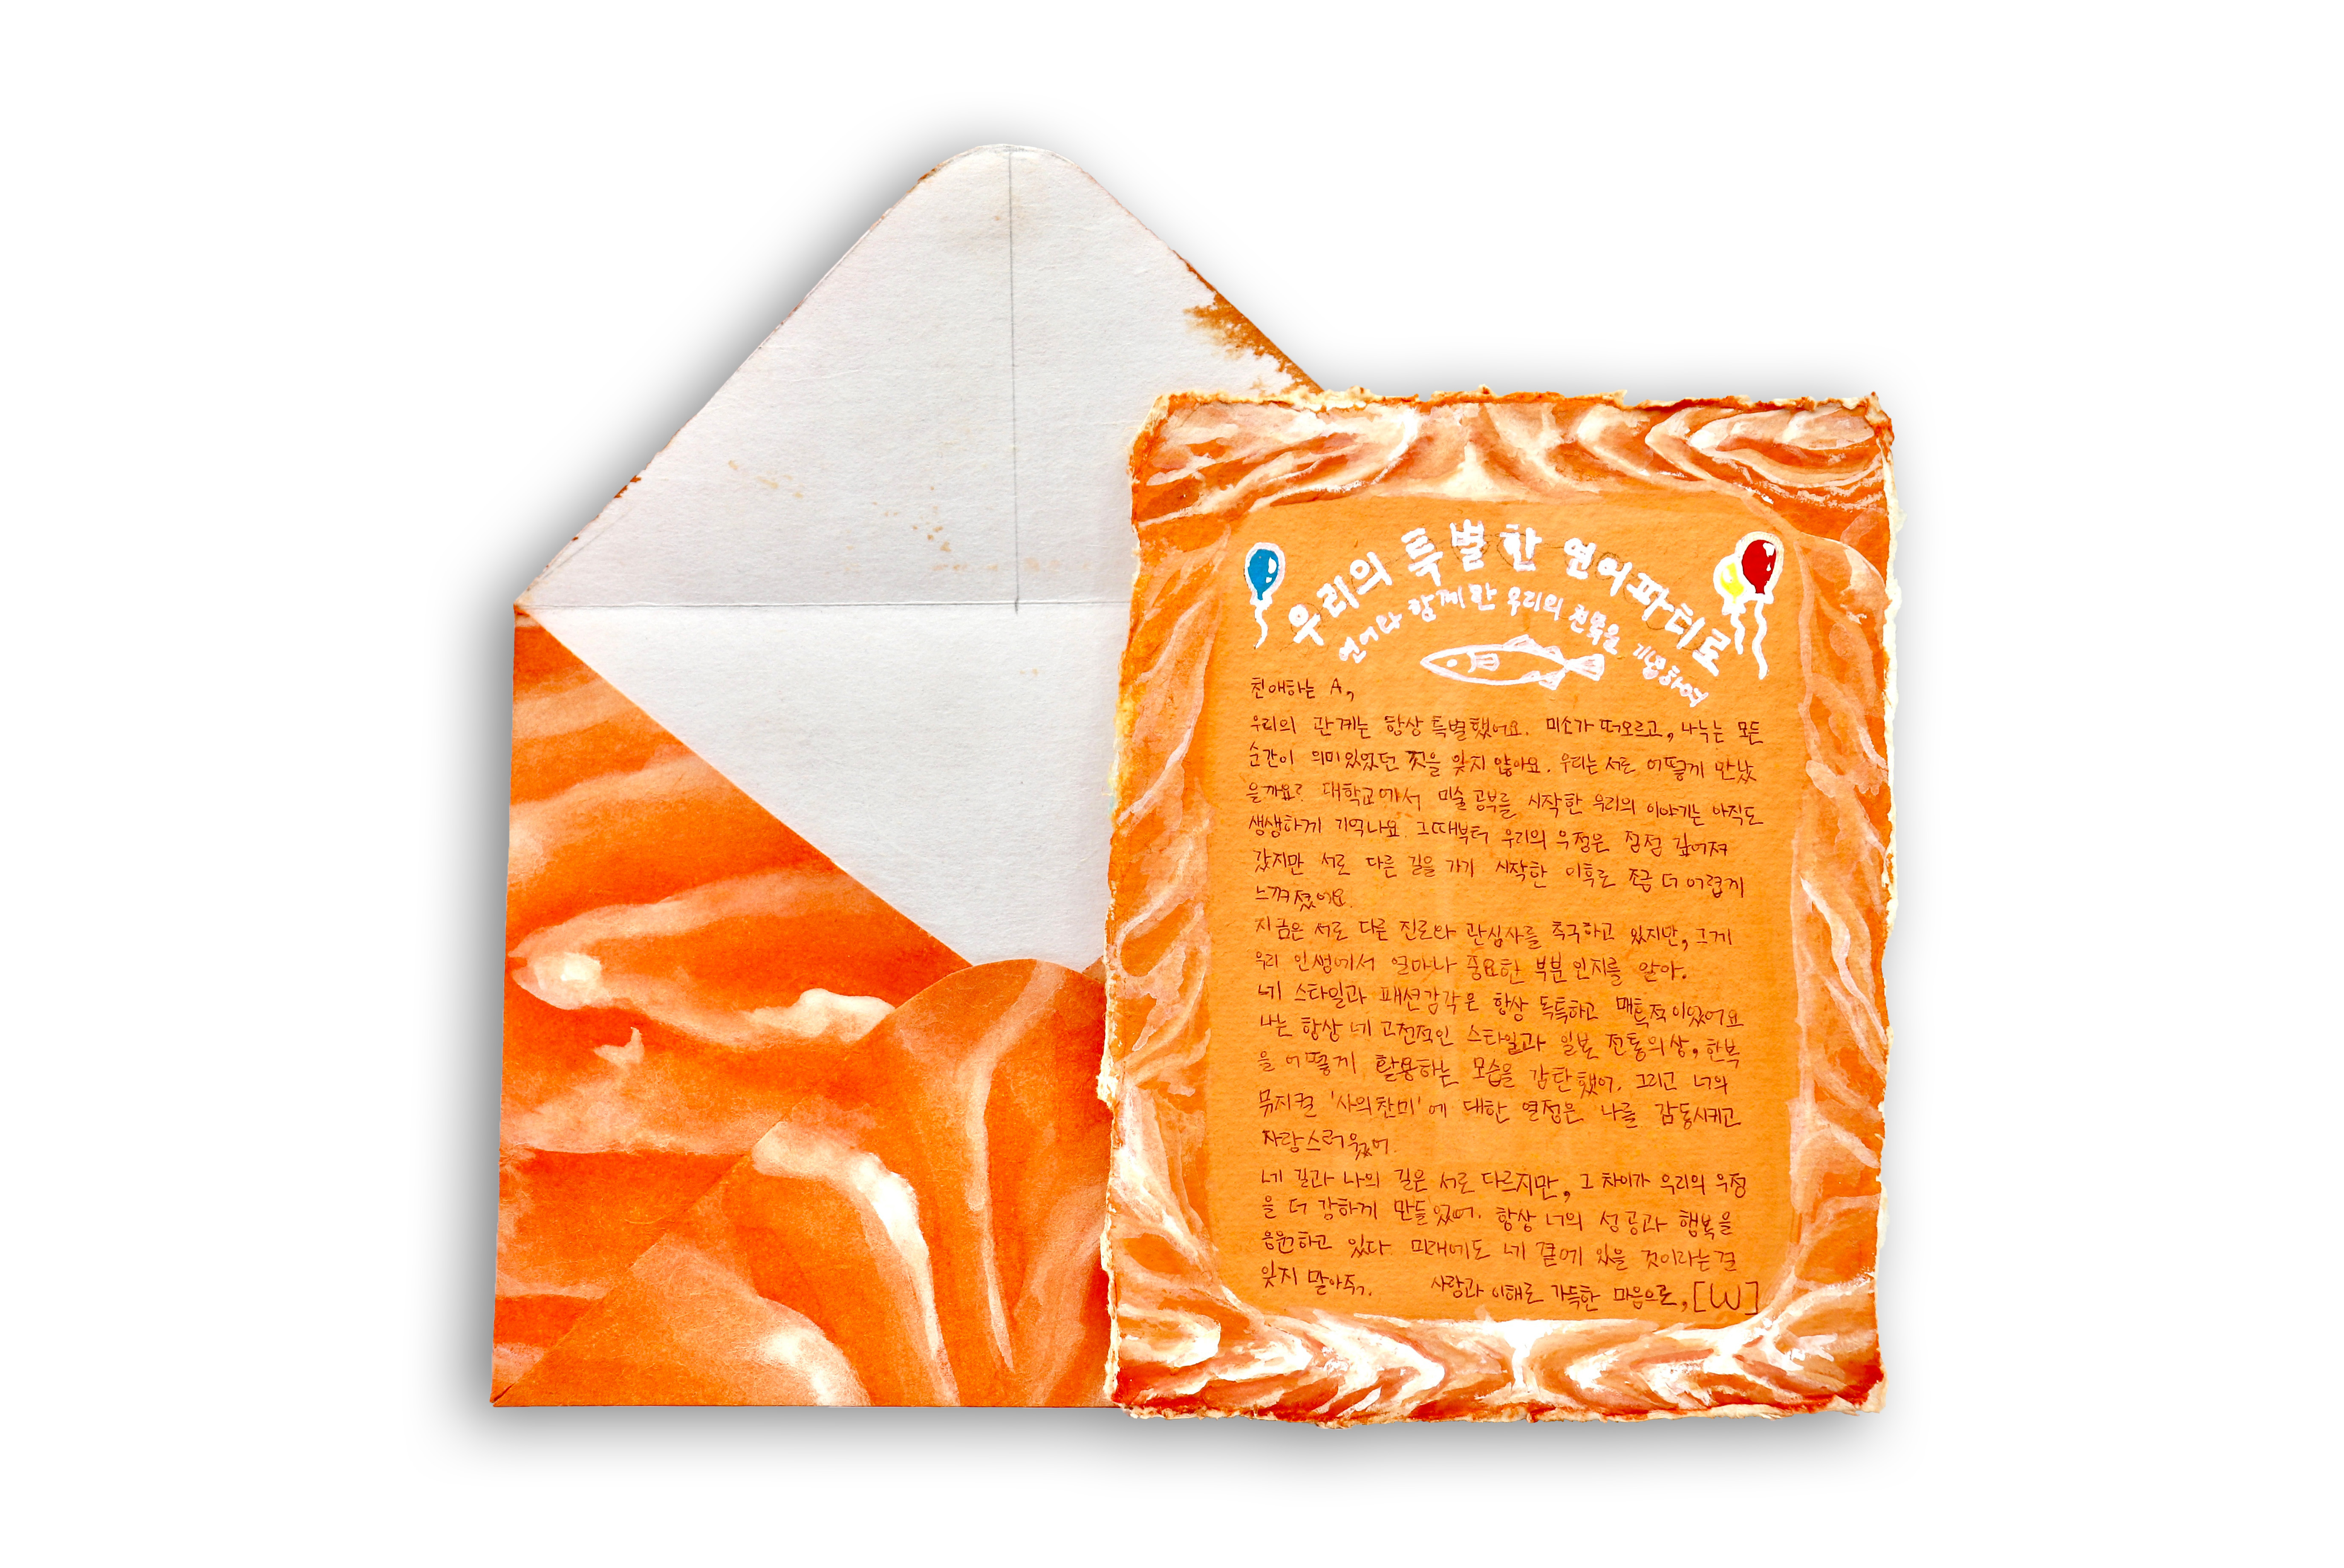 우리의 특별한 연어파티로
연어와 함께한 우리의 친목을 기념하여
친애하는 A,
우리의 관계는 항상 특별했어요. 미소가 떠오르고, 나누는 모든
순간이 의미있었던 것을 잊지 않아요. 우리는 서로 어떻게 만났
을까요? 대학교에서 미술 공부를 시작한 우리의 이야기는 아직도
생생하게 기억나요. 그때부터 우리의 우정은 점점 깊어져
갔지만 서로 다른 길을 가기 시작한 이후로 조금 더 어렵게
느껴졌어요.
지금은 서로 다른 진로와 관심사를 추구하고 있지만, 그게
우리 인생에서 얼마나 중요한 부분인지를 알아.
네 스타일과 패션감각은 항상 독특하고 매혹적이었어요
나는 항상 네 고전적인 스타일과 일본 전통의상, 한복
을 어떻게 활용하는 모습을 감탄했어. 그리고 너의
뮤지컬 '사의찬미'에 대한 열정은 나를 감동시키고
자랑스러웠어.
네 길과 나의 길은 서로 다르지만, 그 차이가 우리의 우정
을 더 강하게 만들었어. 항상 너의 성공과 행복을
응원하고 있다. 미래에도 네 곁에 있을 것이라는걸
잊지 말아줘. 사랑과 이해로 가득한 마음으로, [W]